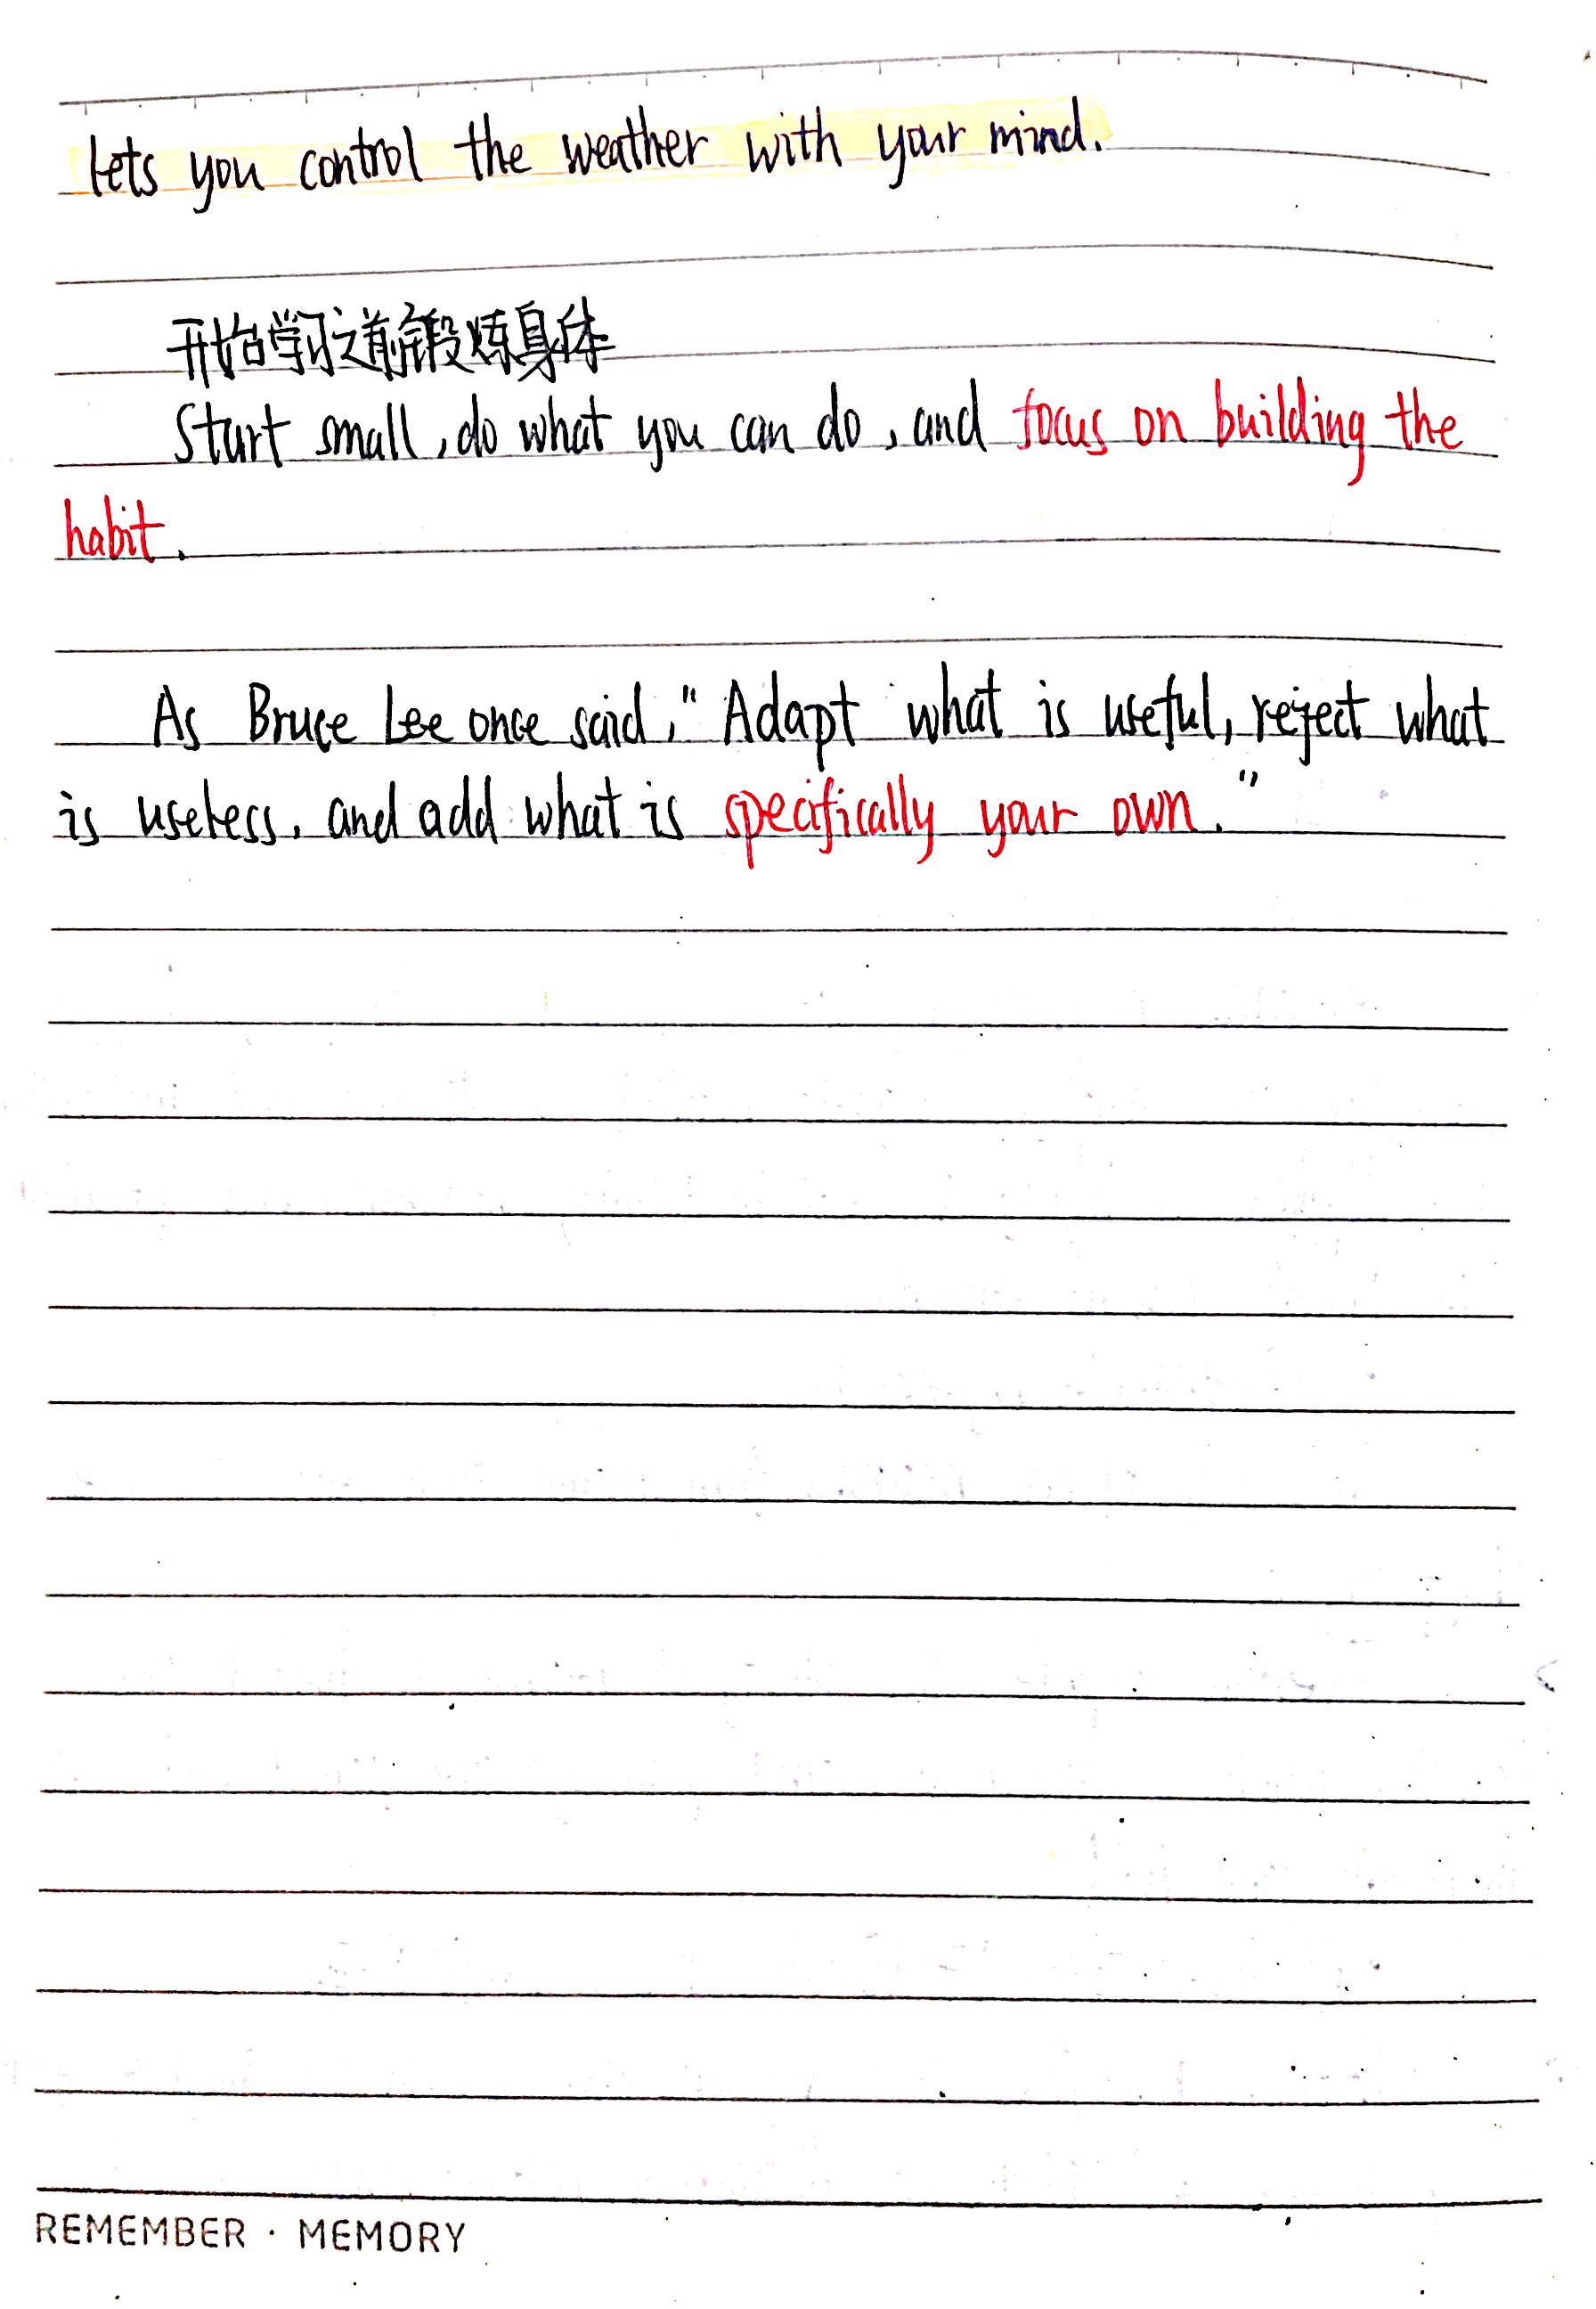 lets you control the weather with your mind.
开始学习之前锻炼身体
Start small, do what you can do, and focus on building the
habit.
As Bruce Lee once said, "Adapt what is useful, reject what
is useless, and add what is specifically your own."
REMEMBER · MEMORY